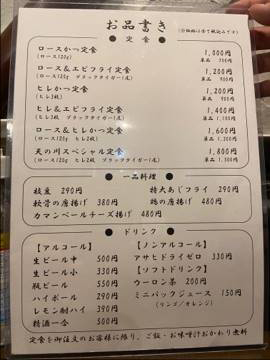 お品書き
(※価格は全て税込みです)
● 定 食 ●
ロースかつ定食 1,000円
(ロース120g) 単品
ロース&エビフライ定食 1,200円
(ロース120g ブラックタイガー1尾) 単品
ヒレかつ定食 1,200円
(ヒレ3枚) 単品
ヒレ&エビフライ定食 1,400円
(ヒレ3枚 ブラックタイガー1尾) 単品
ロース&ヒレかつ定食 1,600円
(ロース120g ヒレ2枚) 単品
天の川スペシャル定食 1,800円
(ロース120g ヒレ2枚 ブラックタイガー1尾) 単品
● 一品料理 ●
枝豆 290円 特大あじフライ 290円
軟骨の唐揚げ 380円 鶏の唐揚げ 480円
カマンベールチーズ揚げ 480円
● ドリンク ●
【アルコール】
生ビール中 500円
生ビール小 330円
瓶ビール 550円
ハイボール 290円
レモン酎ハイ 390円
精酒一合 500円
【ノンアルコール】
アサヒドライゼロ 330円
【ソフトドリンク】
ウーロン茶 200円
ミニパックジュース 150円
(リンゴ/オレンジ)
定食を御注文のお客様に限り、ご飯・お味噌汁おかわり無料